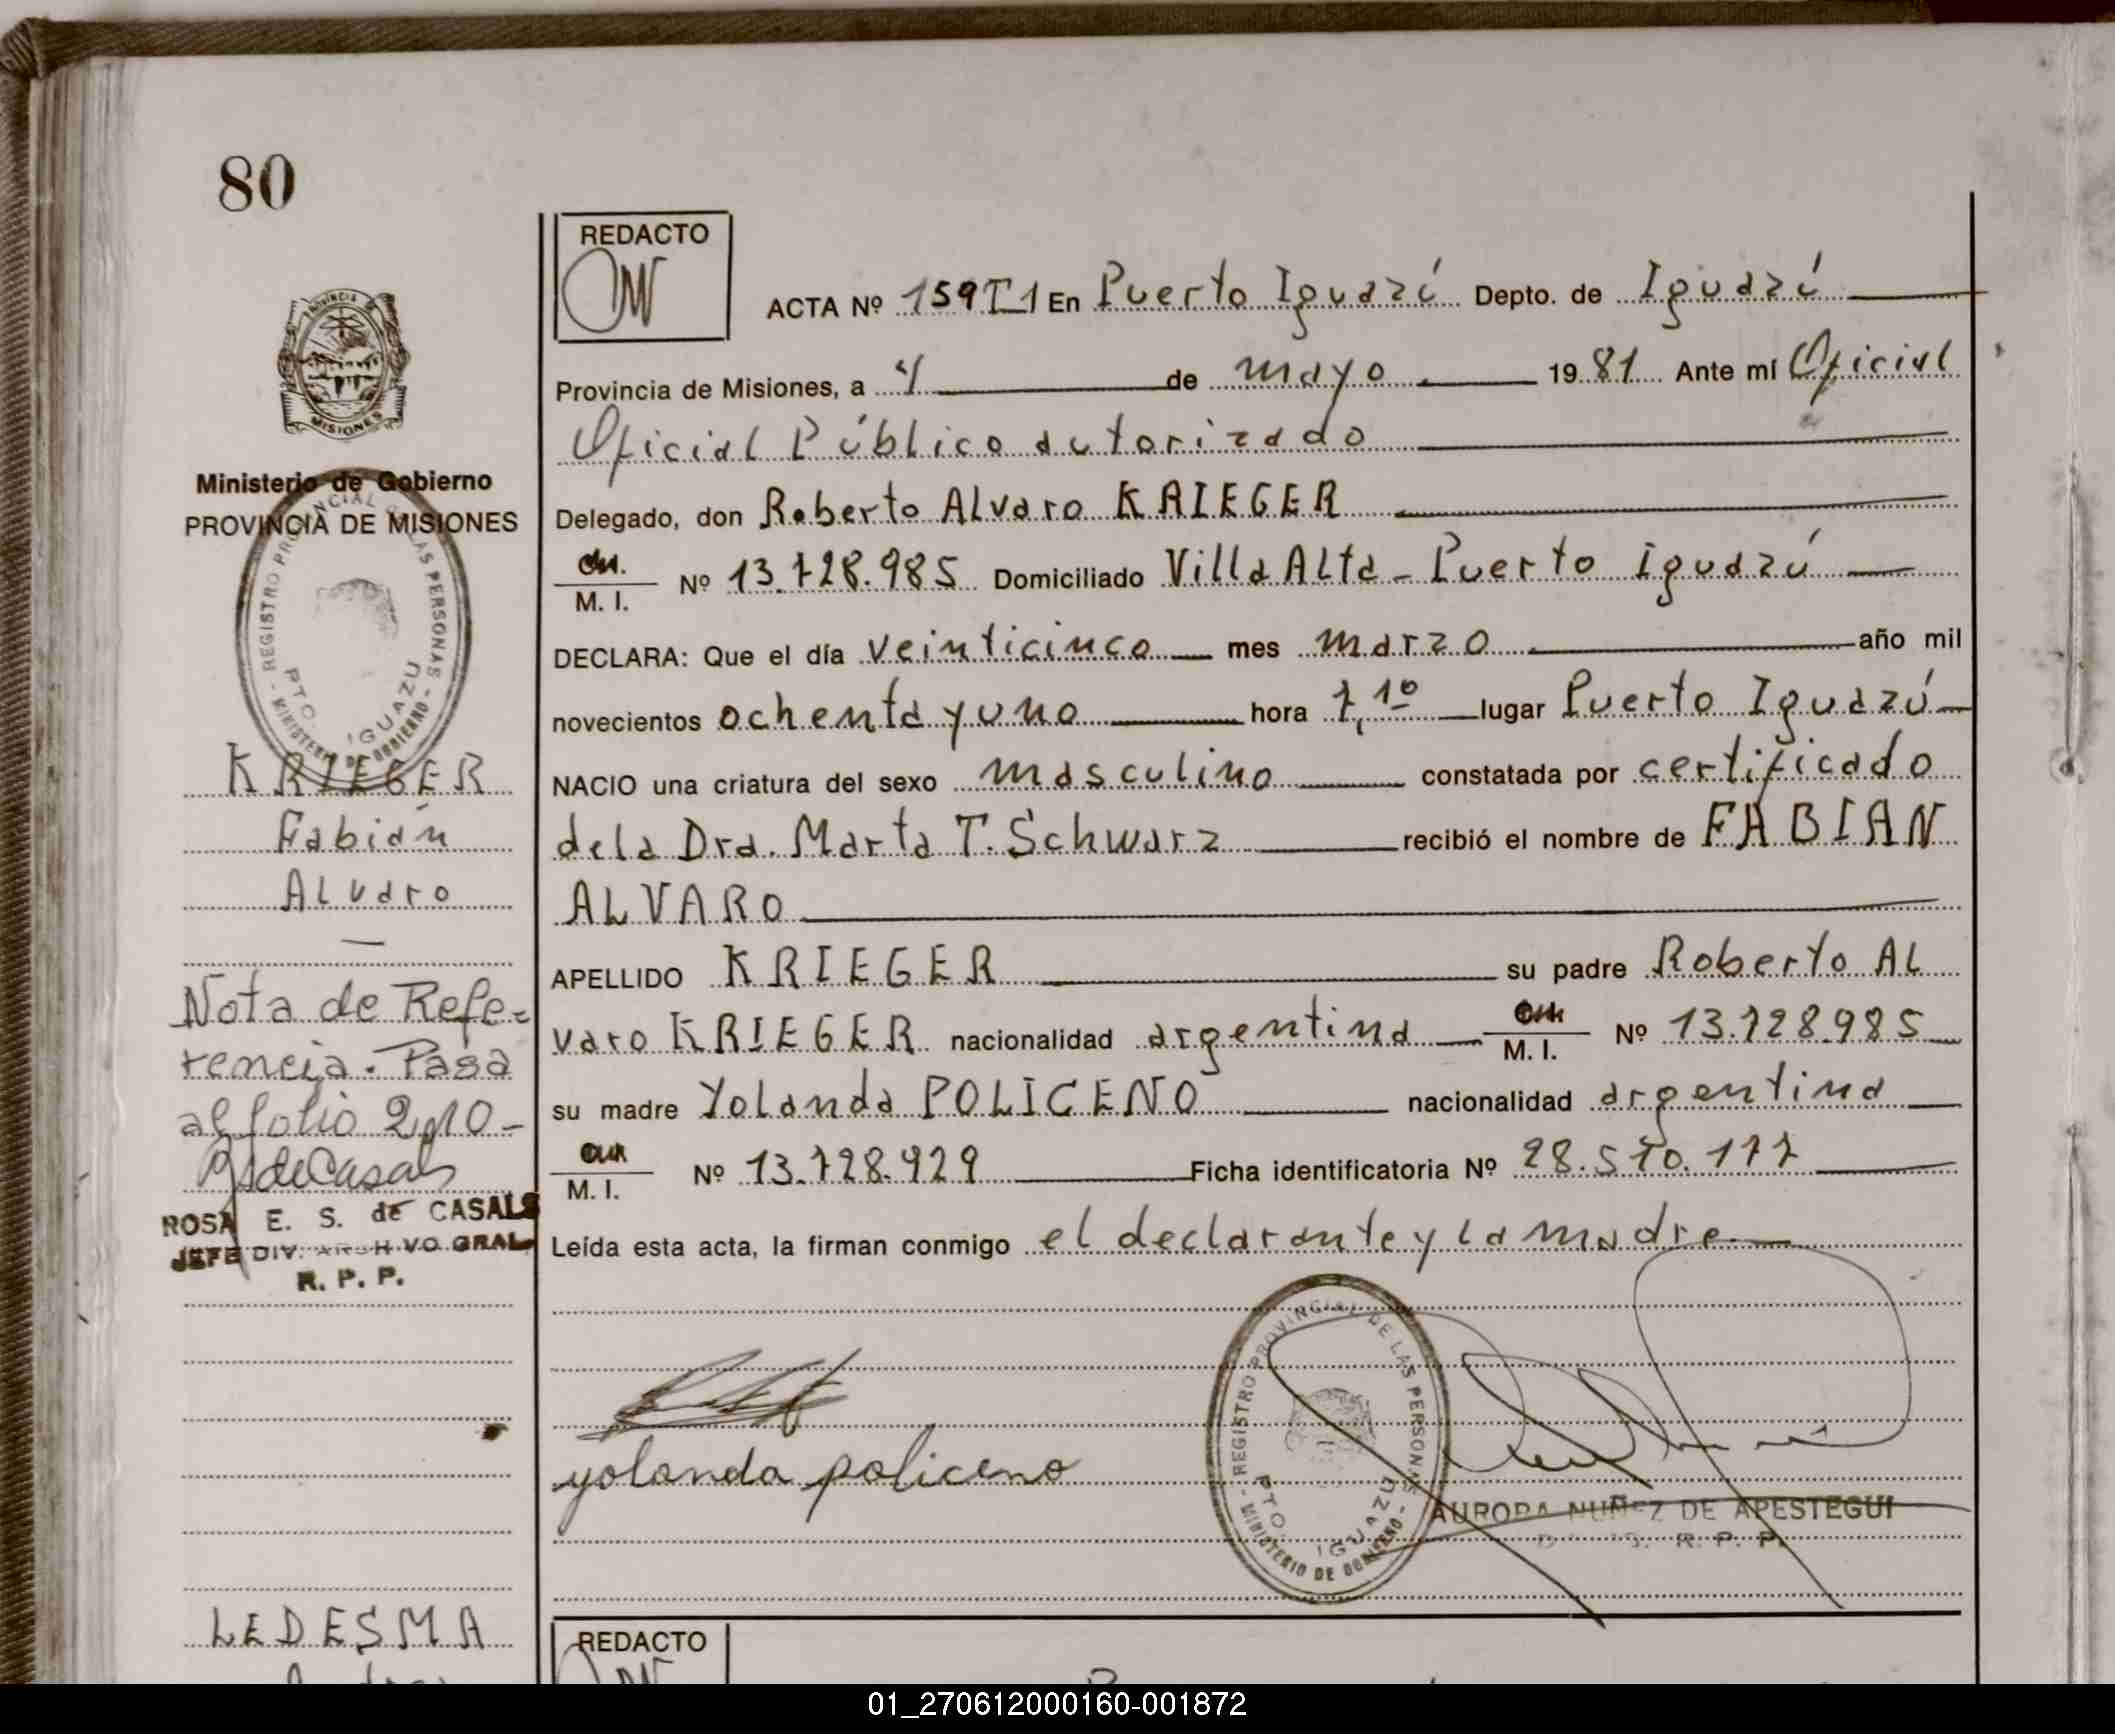 80
REDACTO
ACTA Nº 159T1 En Puerto Iguazú Depto. de Iguazú
Provincia de Misiones, a 4 de mayo 1981 Ante mí Oficial
Oficial Público autorizado
Delegado, don Roberto Alvaro KRIEGER
M. I. Nº 13.728.985 Domiciliado Villa Alta - Puerto Iguazú
DECLARA: Que el día veinticinco mes marzo año mil
novecientos ochenta y uno hora 7,10 lugar Puerto Iguazú
NACIO una criatura del sexo masculino constatada por certificado
de la Dra. Marta T. Schwarz recibió el nombre de FABIAN
ALVARO
APELLIDO KRIEGER su padre Roberto AL
varo KRIEGER nacionalidad argentina M. I. Nº 13.728.985
su madre Yolanda POLICENO nacionalidad argentina
M. I. Nº 13.728.929 Ficha identificatoria Nº 28.570.177
Leída esta acta, la firman conmigo el declarante y la madre
yolanda policeno
AURORA NUÑEZ DE APESTEGUI
R. P. P.
REGISTRO PROVINCIAL DE LAS PERSONAS
MINISTERIO DE GOBIERNO
PTO. IGUAZU
PROVINCIA
MISIONES
Ministerio de Gobierno
PROVINCIA DE MISIONES
REGISTRO PROVINCIAL DE LAS PERSONAS
MINISTERIO DE GOBIERNO
PTO. IGUAZU
KRIEGER
Fabián
Alvaro
Nota de Refe-
rencia. Pasa
al folio 210-
RSdeCasals
ROSA E. S. de CASALS
JEFE DIV. ARCHIVO GRAL
R. P. P.
LEDESMA
REDACTO
01_270612000160-001872